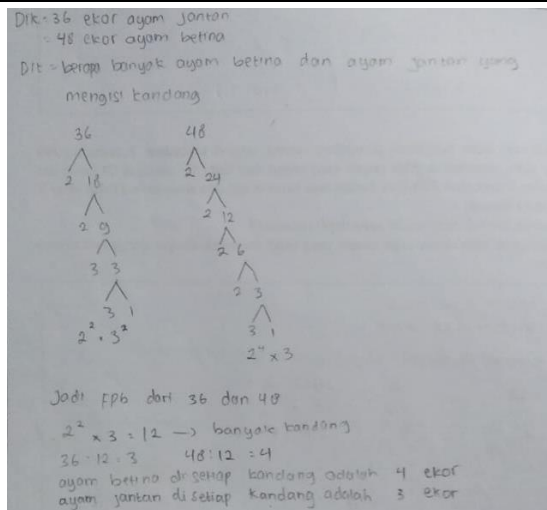 Dik = 36 ekor ayam jantan
= 48 ekor ayam betina
Dit = berapa banyak ayam betina dan ayam jantan yang
mengisi kandang
36 48
2 18 2 24
2 9 2 12
3 3 2 6
3 1 2 3
2² · 3² 3 1
2⁴ x 3
Jadi FPB dari 36 dan 48
2² x 3 = 12 → banyak kandang
36 : 12 = 3 48 : 12 = 4
ayam betina di setiap kandang adalah 4 ekor
ayam jantan di setiap kandang adalah 3 ekor